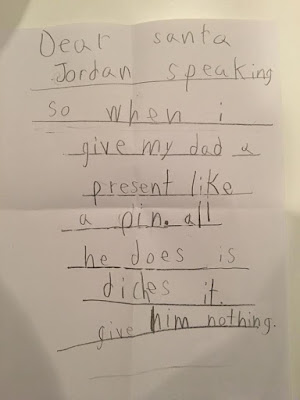 Dear santa
Jordan speaking
so when i
give my dad a
present like
a pin. all
he does is
diches it.
give him nothing.